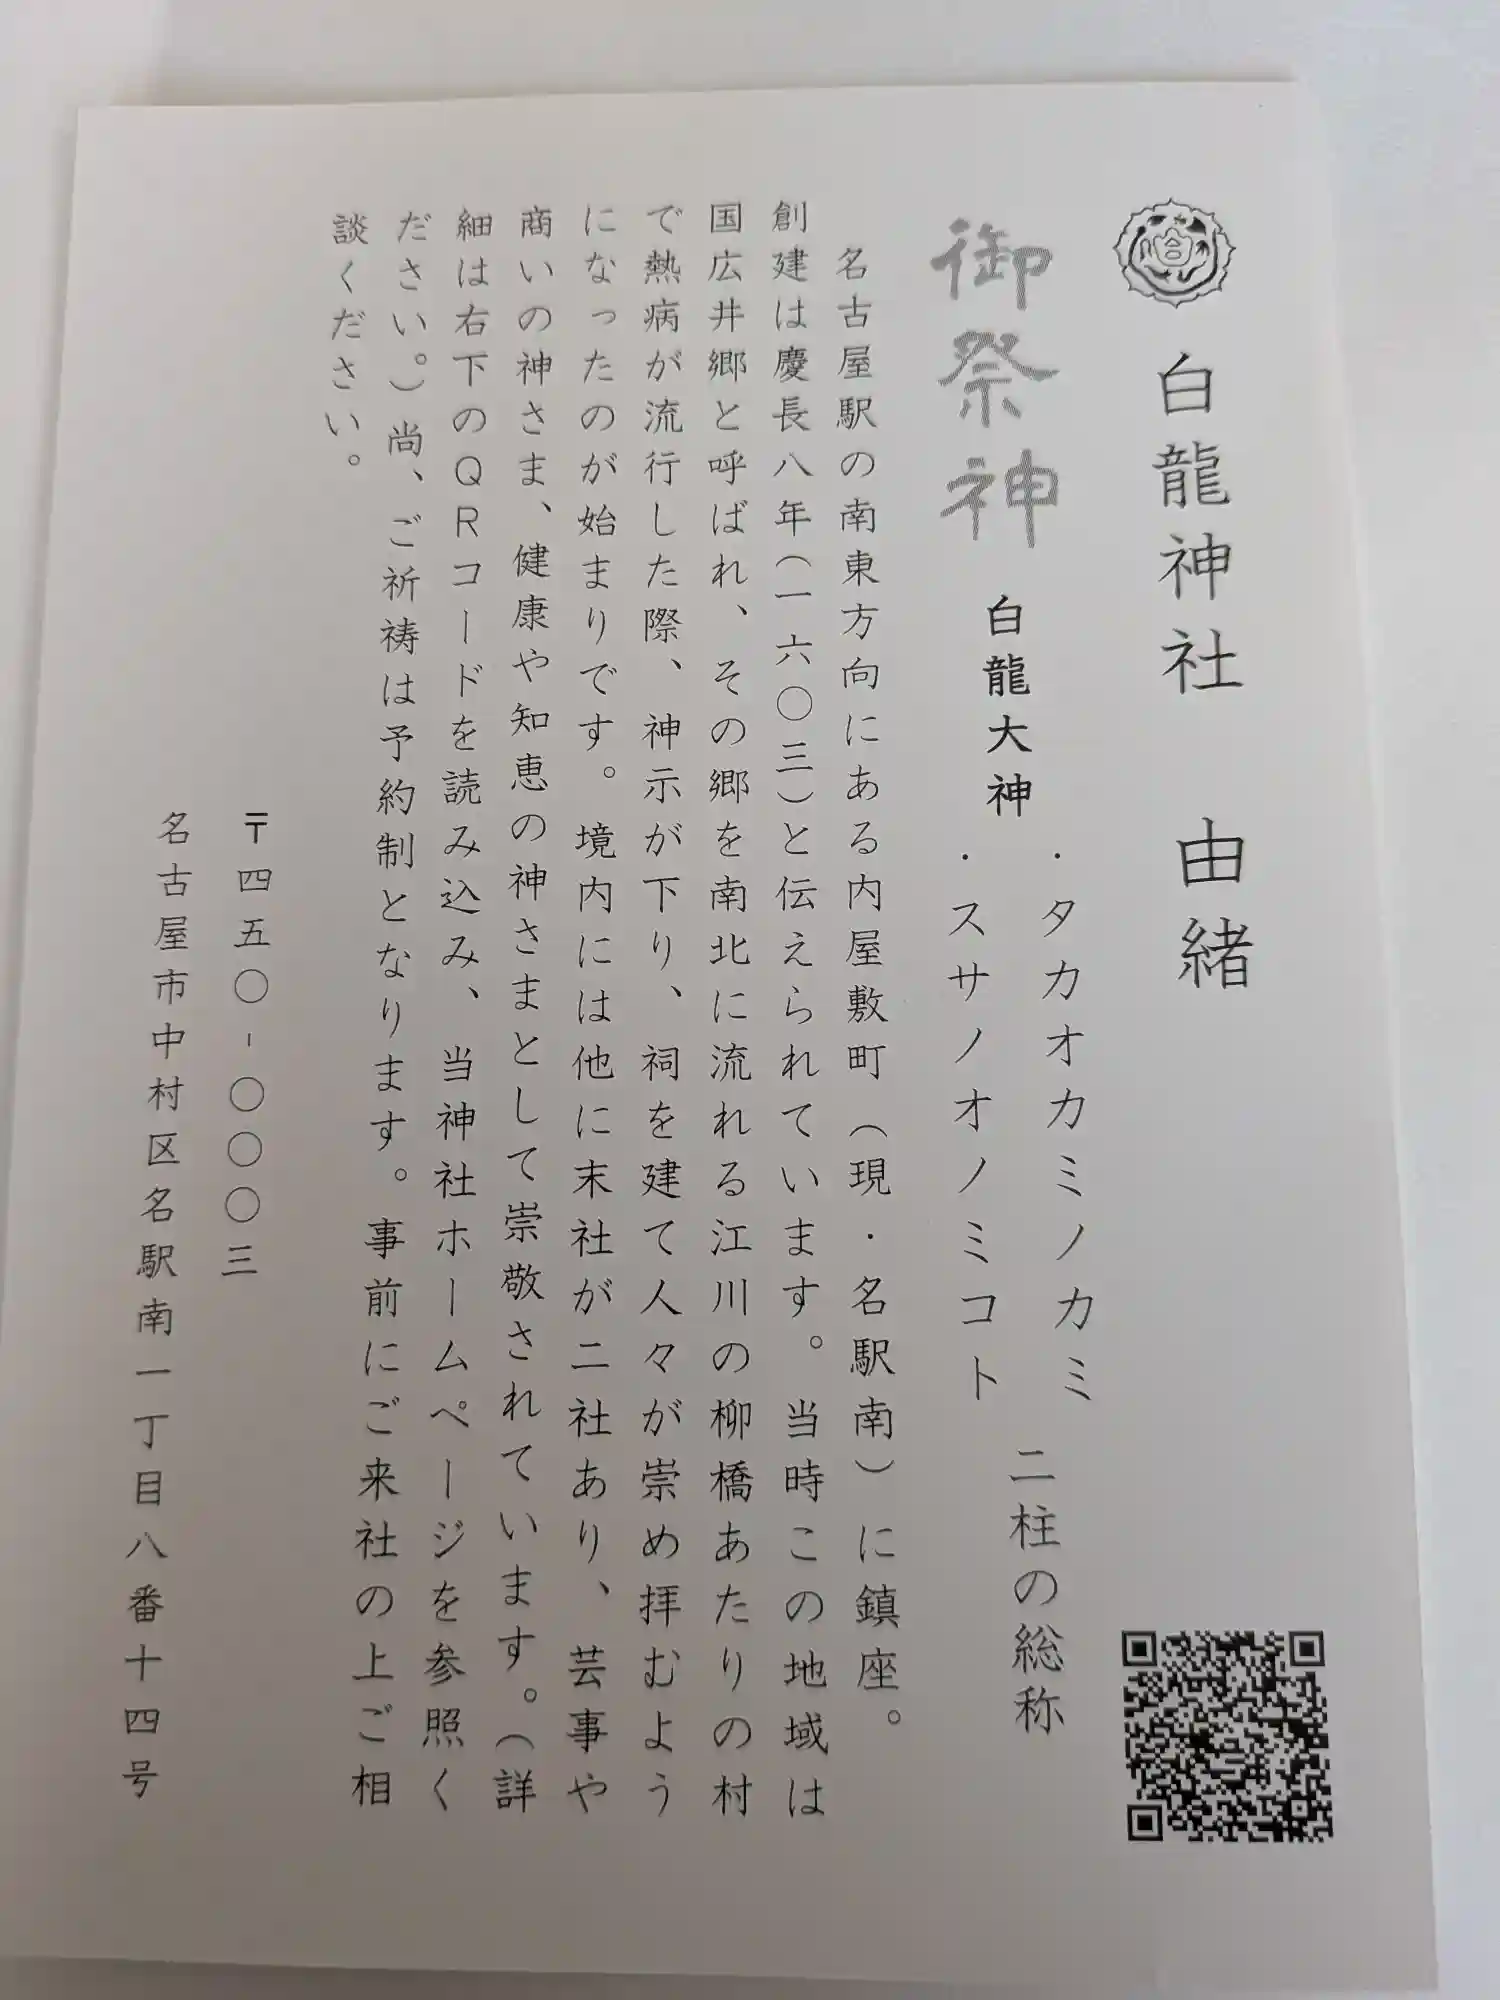 白龍神社　由緒
御祭神
白龍大神
・タカオカミノカミ
・スサノオノミコト
二柱の総称
名古屋駅の南東方向にある内屋敷町（現・名駅南）に鎮座。
創建は慶長八年（一六〇三）と伝えられています。当時この地域は
国広井郷と呼ばれ、その郷を南北に流れる江川の柳橋あたりの村
で熱病が流行した際、神示が下り、祠を建て人々が崇め拝むよう
になったのが始まりです。境内には他に末社が二社あり、芸事や
商いの神さま、健康や知恵の神さまとして崇敬されています。（詳
細は右下のＱＲコードを読み込み、当神社ホームページを参照く
ださい。）尚、ご祈祷は予約制となります。事前にご来社の上ご相
談ください。
〒四五〇-〇〇〇三
名古屋市中村区名駅南一丁目八番十四号